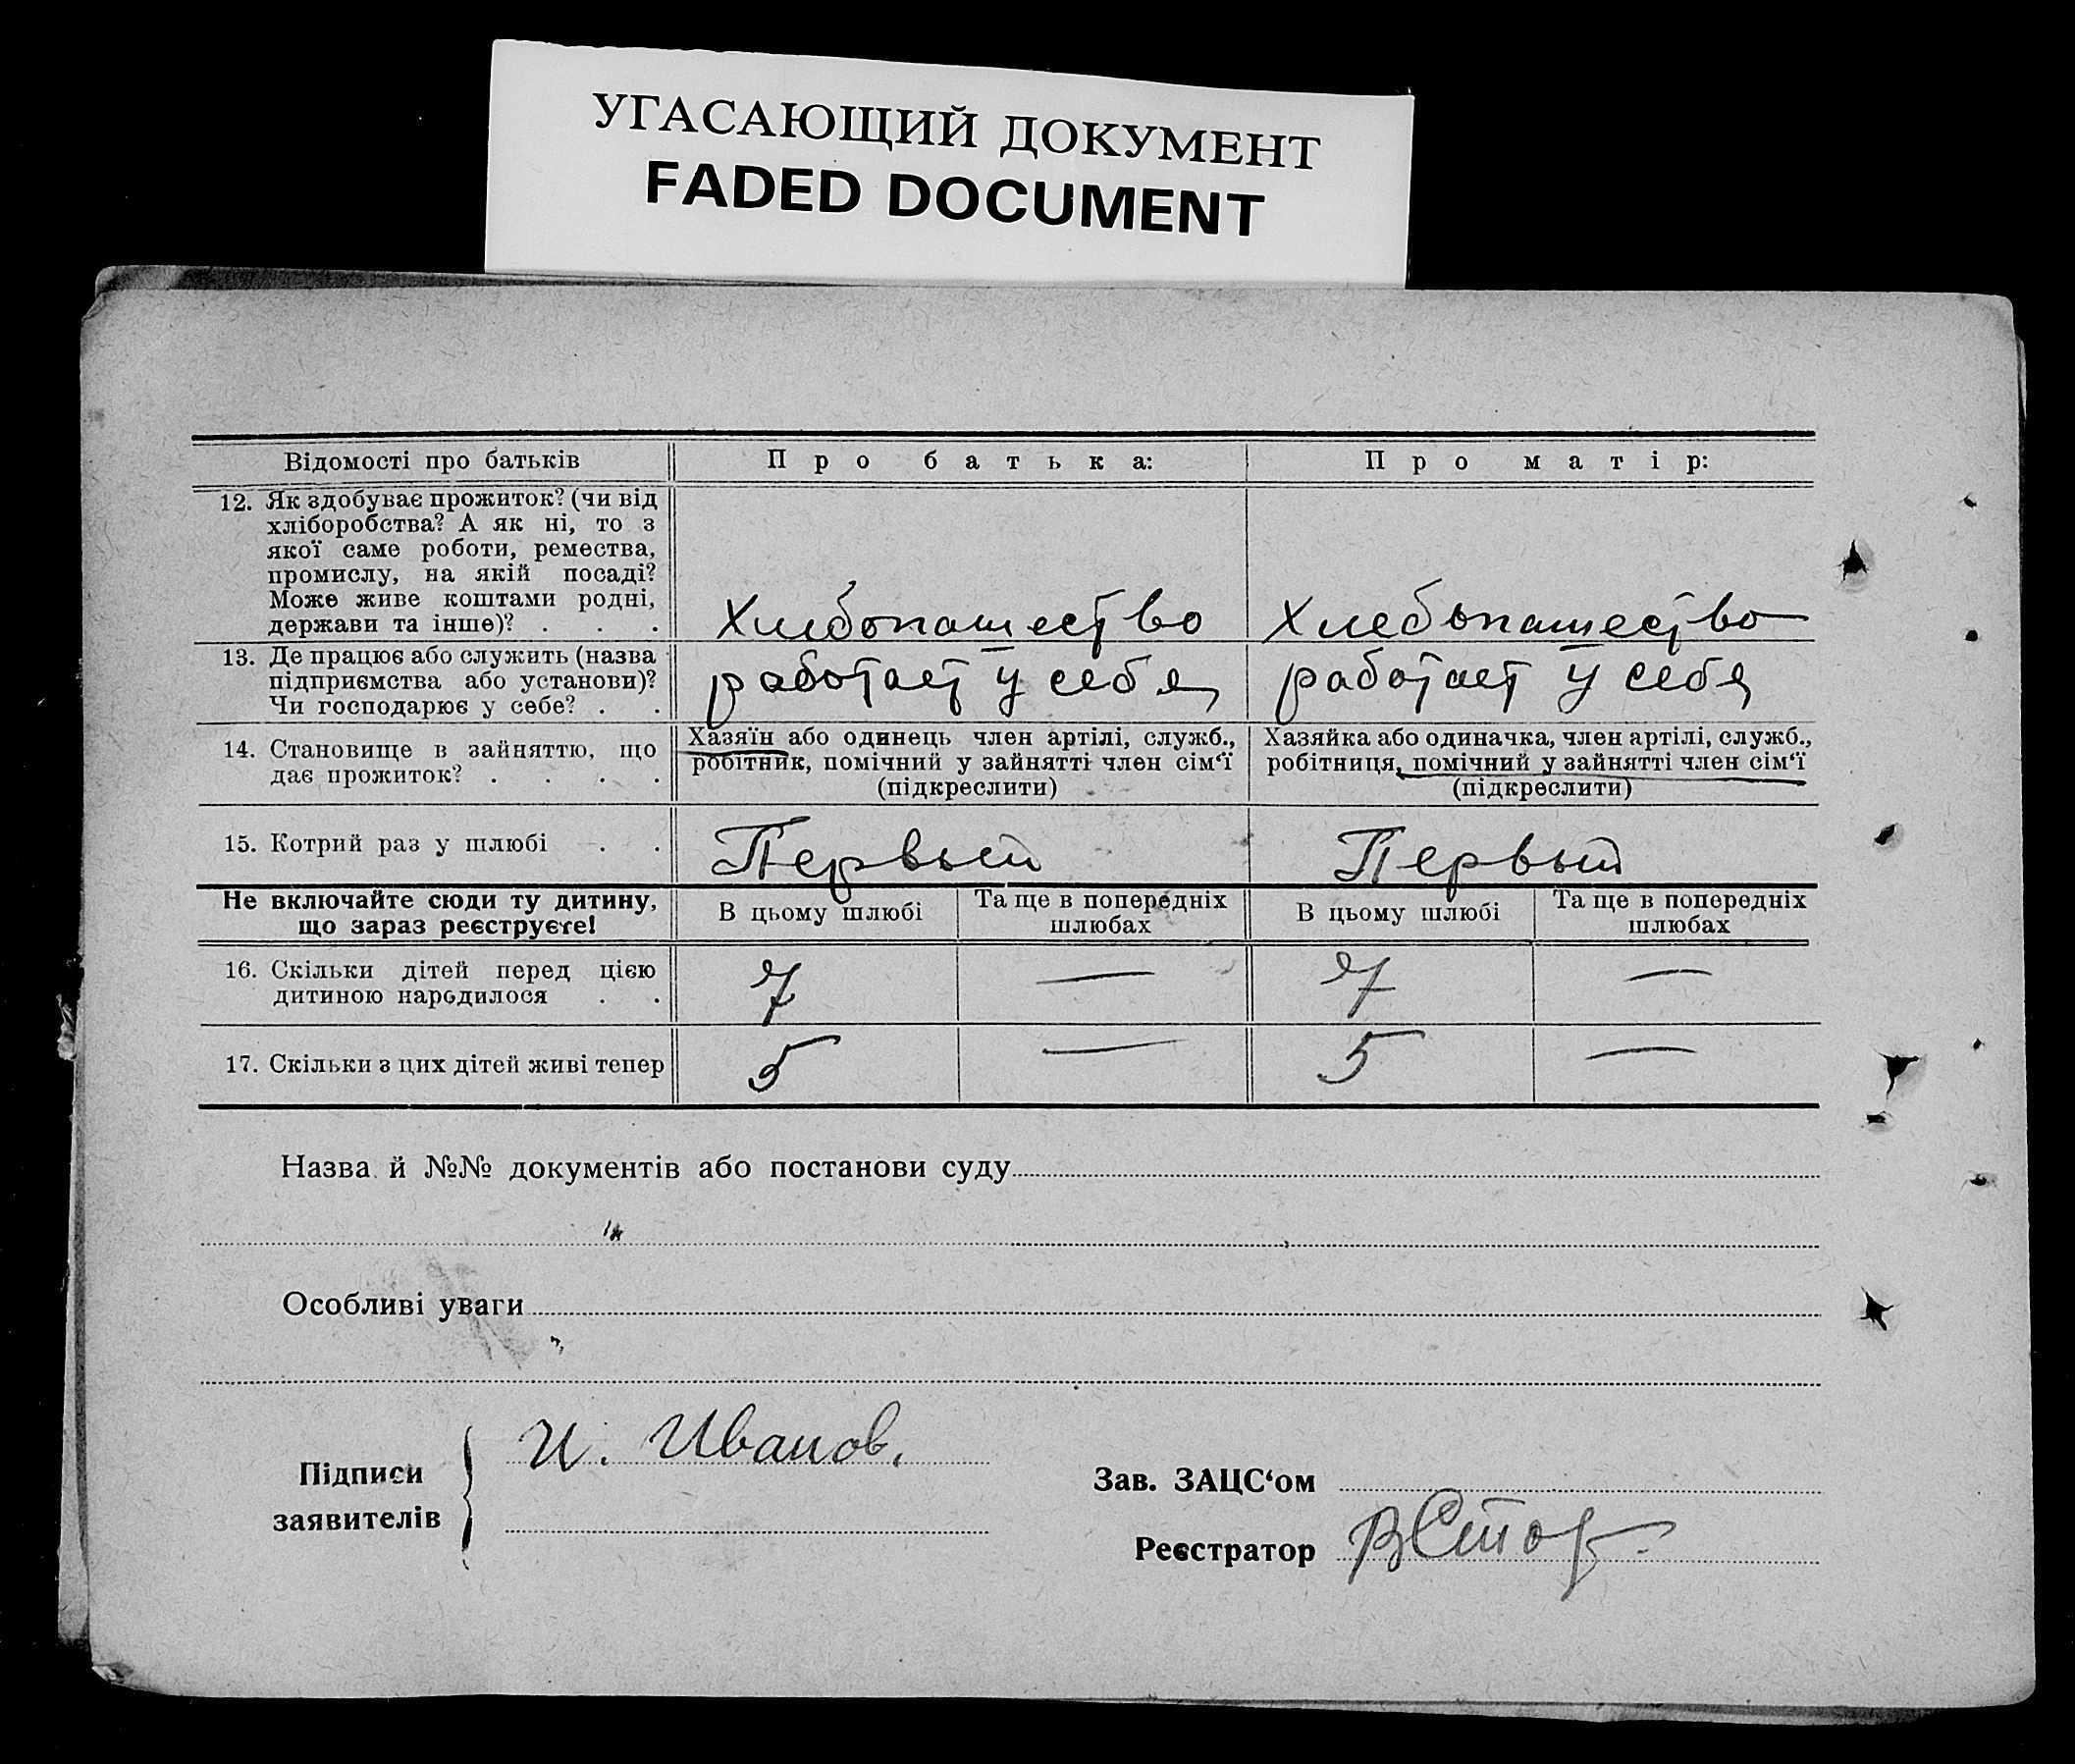 УГАСАЮЩИЙ ДОКУМЕНТ
FADED DOCUMENT
Відомості про батьків
Про батька:
Про матір:
12. Як здобуває прожиток? (чи від
хліборобства? А як ні, то з
якої саме роботи, ремества,
промислу, на якій посаді?
Може живе коштами родні,
держави та інше)? . . .
Хлебопашество
Хлебопашество
13. Де працює або служить (назва
підприємства або установи)?
Чи господарює у себе? . .
работает у себя
работает у себя
14. Становище в зайняттю, що
дає прожиток? . . . .
Хазяїн або одинець член артілі, служб.,
робітник, помічний у зайнятті член сім‘ї
(підкреслити)
Хазяйка або одиначка, член артілі, служб.,
робітниця, помічний у зайнятті член сім‘ї
(підкреслити)
15. Котрий раз у шлюбі . .
Первый
Первый
Не включайте сюди ту дитину,
що зараз реєструєте!
В цьому шлюбі
Та ще в попередніх
шлюбах
В цьому шлюбі
Та ще в попередніх
шлюбах
16. Скільки дітей перед цією
дитиною народилося . .
7
—
7
—
17. Скільки з цих дітей живі тепер
5
—
5
—
Назва й №№ документів або постанови суду
Особливі уваги
Підписи
заявителів
И. Иванов.
Зав. ЗАЦС‘ом
Реєстратор